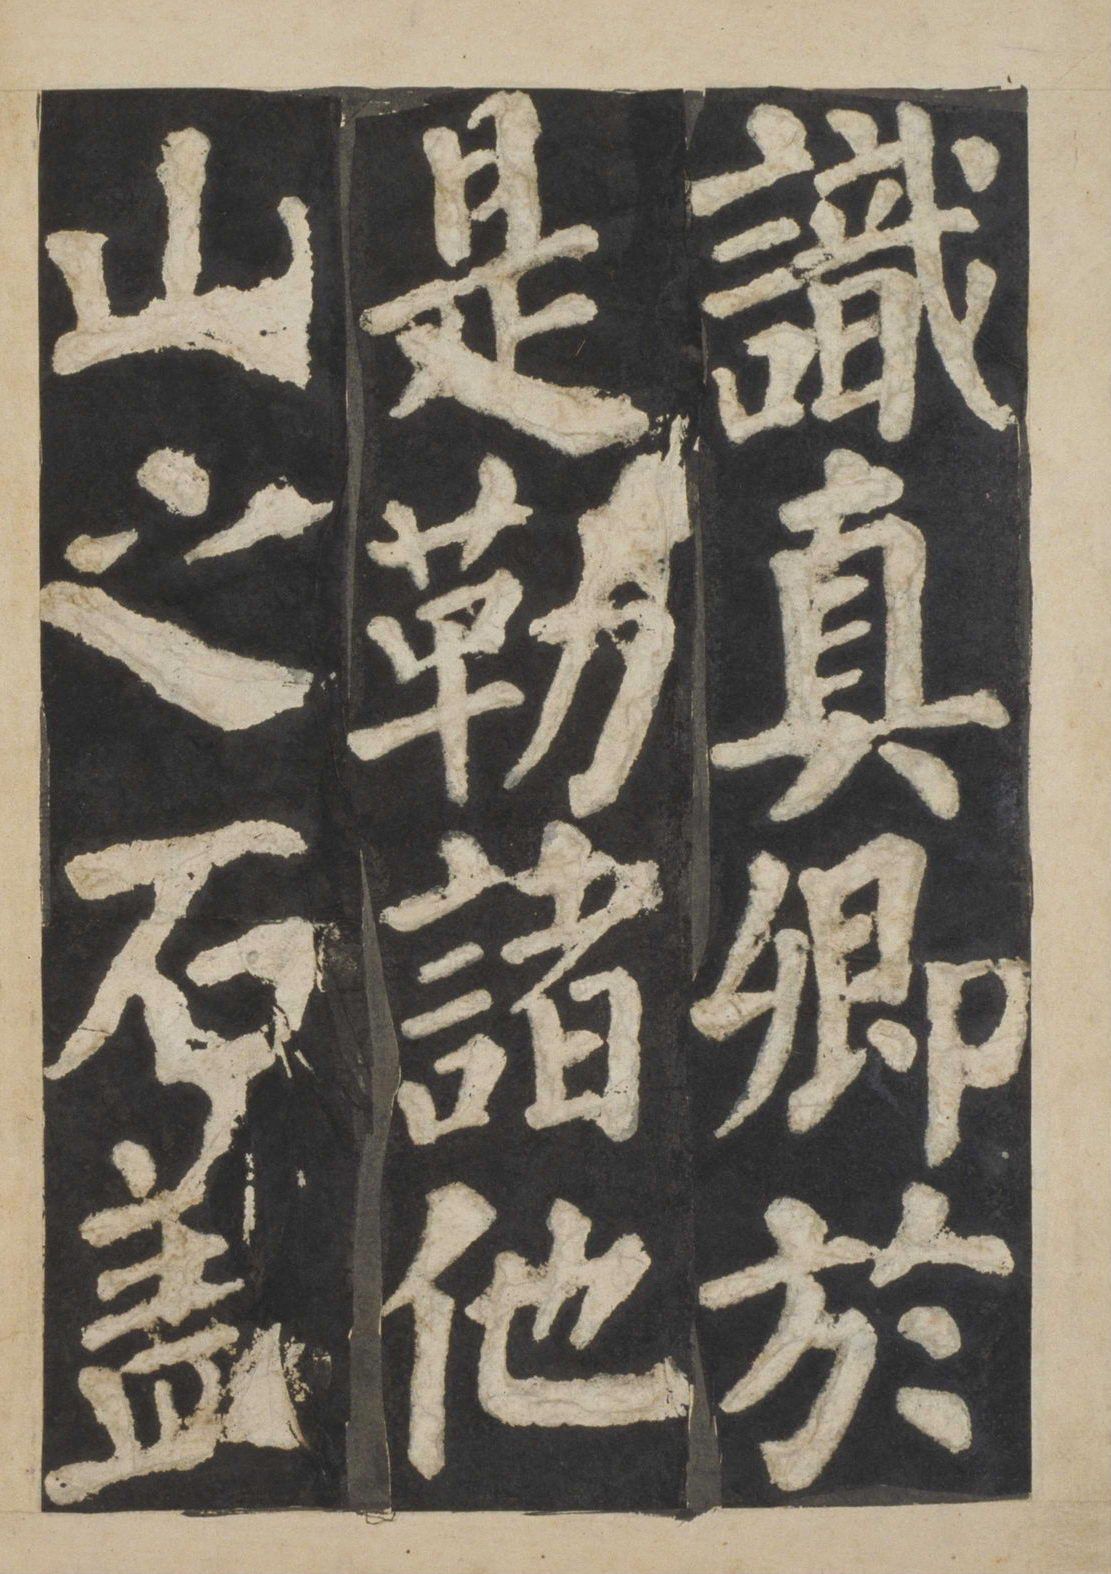 識真卿於
是勒諸他
山之石盖